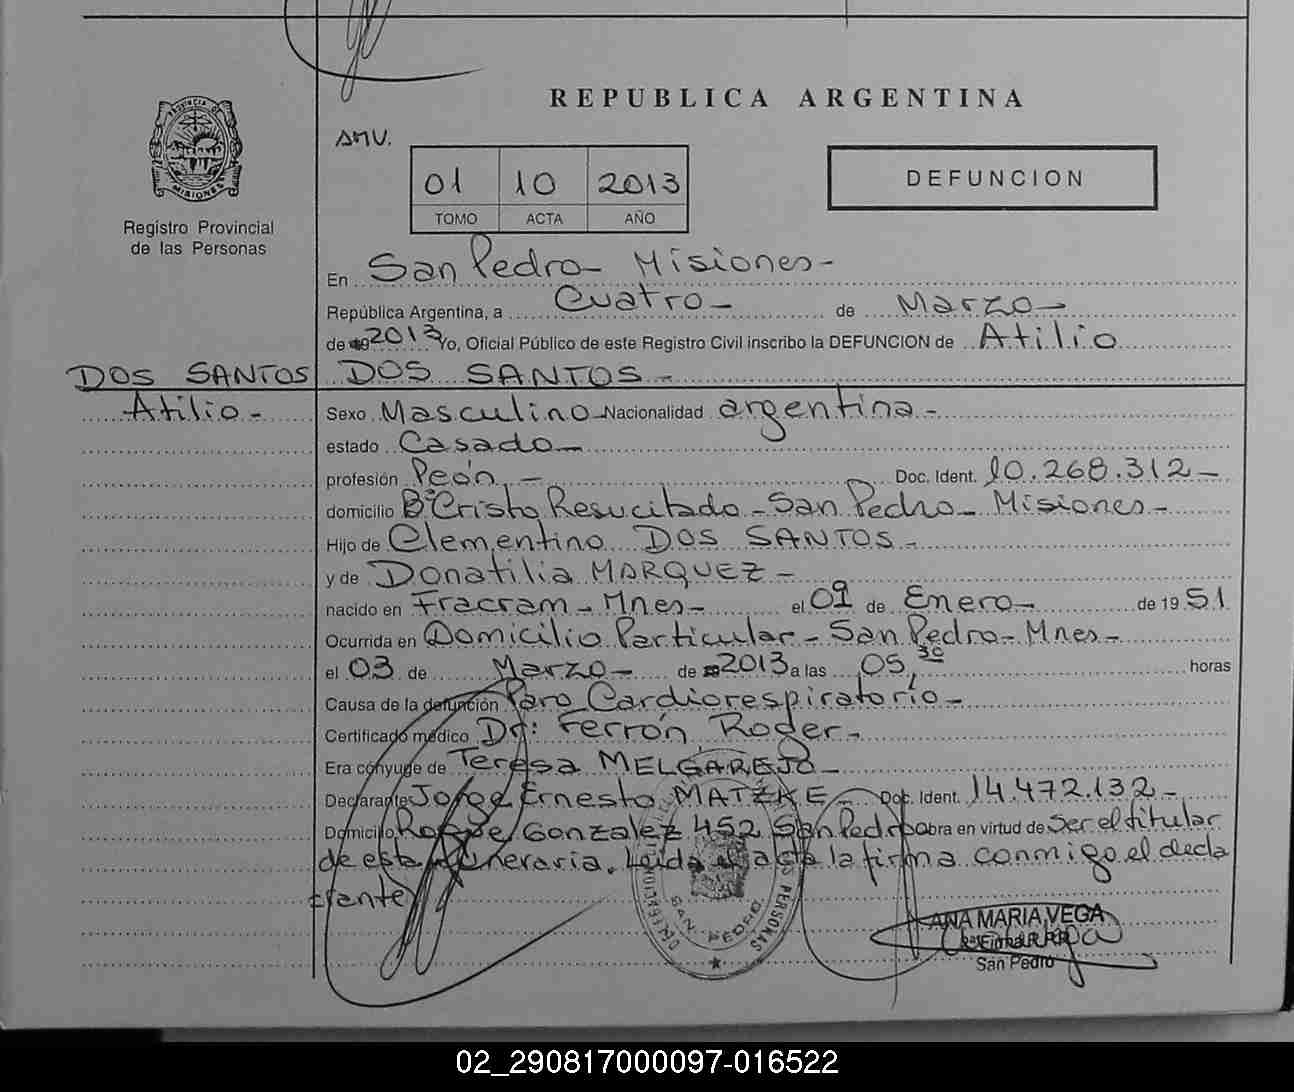 REPUBLICA ARGENTINA
PROVINCIA DE
MISIONES
Registro Provincial
de las Personas
AMV.
01 10 2013
TOMO ACTA AÑO
DEFUNCION
En San Pedro - Misiones -
República Argentina, a Cuatro - de Marzo -
de 2013 Yo, Oficial Público de este Registro Civil inscribo la DEFUNCION de Atilio
DOS SANTOS DOS SANTOS -
Atilio - Sexo Masculino - Nacionalidad argentina -
estado Casado -
profesión Peón - Doc. Ident. 10.268.312 -
domicilio Bº Cristo Resucitado - San Pedro - Misiones -
Hijo de Clementino DOS SANTOS -
y de Donatilia MARQUEZ -
nacido en Fracram - Mnes - el 09 de Enero - de 1951
Ocurrida en Domicilio Particular - San Pedro - Mnes -
el 03 de Marzo - de 2013 a las 05,30 horas
Causa de la defunción Paro Cardiorespiratorio -
Certificado médico Dr: Ferrón, Roger -
Era cónyuge de Teresa MELGAREJO -
Declarante Jorge Ernesto MATZKE - Doc. Ident. 14.472.132 -
Domicilio Roque Gonzalez 452 San Pedro Obra en virtud de Ser el titular
de esta funeraria. Leida el acta la firma conmigo el decla
rante
SAN PEDRO
PERSONAS
ANA MARIA VEGA
San Pedro
02_290817000097-016522